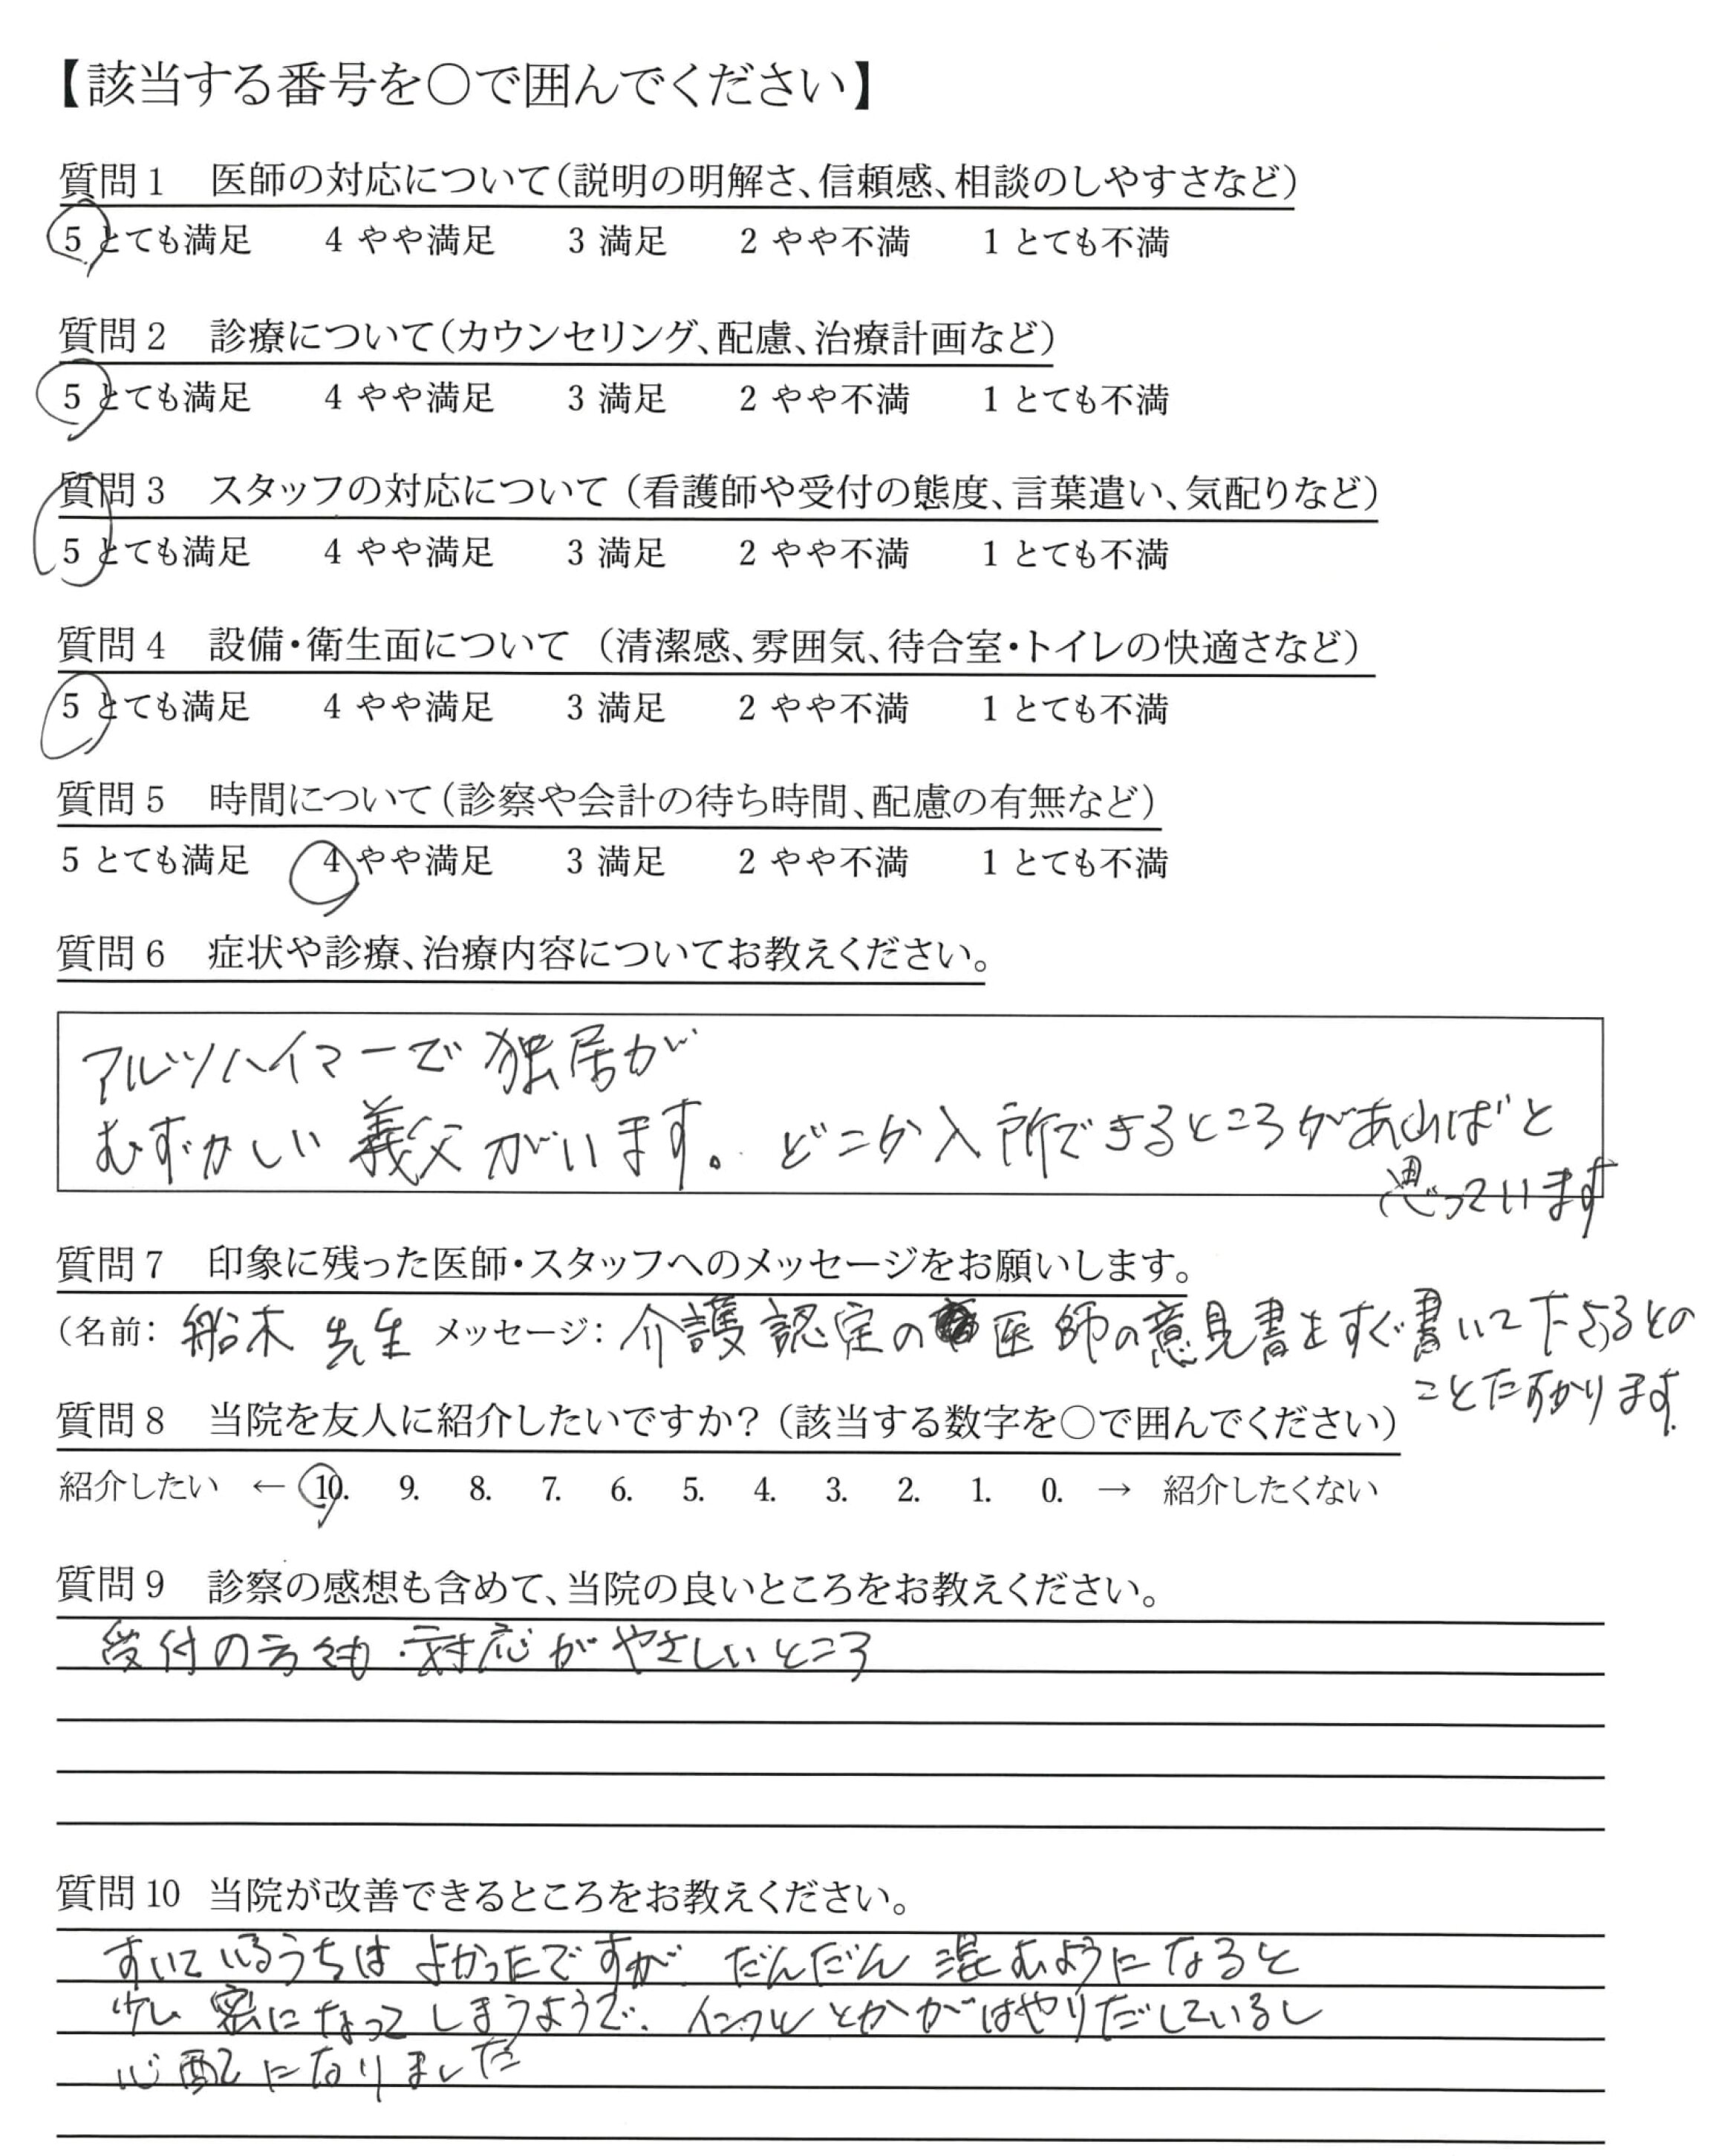 【該当する番号を〇で囲んでください】
質問1 医師の対応について（説明の明解さ、信頼感、相談のしやすさなど）
5 とても満足 4 やや満足 3 満足 2 やや不満 1 とても不満
質問2 診療について（カウンセリング、配慮、治療計画など）
5 とても満足 4 やや満足 3 満足 2 やや不満 1 とても不満
質問3 スタッフの対応について（看護師や受付の態度、言葉遣い、気配りなど）
5 とても満足 4 やや満足 3 満足 2 やや不満 1 とても不満
質問4 設備・衛生面について（清潔感、雰囲気、待合室・トイレの快適さなど）
5 とても満足 4 やや満足 3 満足 2 やや不満 1 とても不満
質問5 時間について（診察や会計の待ち時間、配慮の有無など）
5 とても満足 4 やや満足 3 満足 2 やや不満 1 とても不満
質問6 症状や診療、治療内容についてお教えください。
アルツハイマーで独居が
むずかしい義父がいます。どこか入所できるところがあればと
思っています
質問7 印象に残った医師・スタッフへのメッセージをお願いします。
（名前：船木先生 メッセージ：介護認定の医師の意見書をすぐ書いて下さるとの
ことたすかります。
質問8 当院を友人に紹介したいですか？（該当する数字を〇で囲んでください）
紹介したい ← 10. 9. 8. 7. 6. 5. 4. 3. 2. 1. 0. → 紹介したくない
質問9 診察の感想も含めて、当院の良いところをお教えください。
受付の方々も対応がやさしいところ
質問10 当院が改善できるところをお教えください。
すいているうちはよかったですが、だんだん混むようになると
少し密になってしまうようで、インフルとかがはやりだしているし
心配になりました